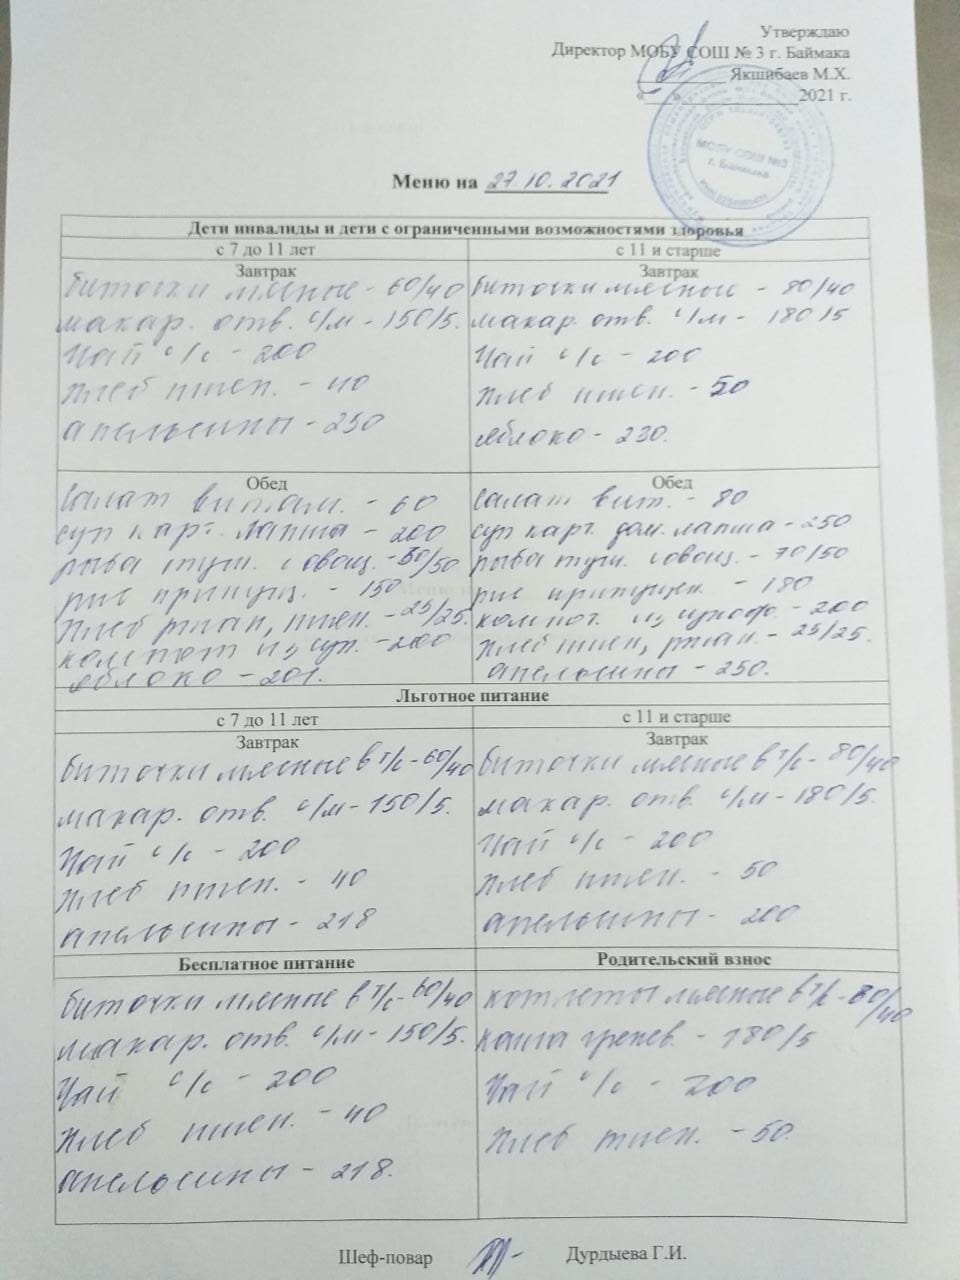 Утверждаю
Директор МОБУ СОШ № 3 г. Баймака
Якшибаев М.Х.
« » 2021 г.
МОБУ СОШ №3
г. Баймака
Меню на 27.10.2021
Дети инвалиды и дети с ограниченными возможностями здоровья
с 7 до 11 лет
Завтрак
биточки мясные - 60/40
макар. отв. с/м - 150/5.
Чай с/с - 200
Хлеб пшен. - 40
апельсины - 230
с 11 и старше
Завтрак
биточки мясные - 80/40
макар. отв. с/м - 180/5
Чай с/с - 200
Хлеб пшен. - 50
яблоко - 230.
Обед
Салат витам. - 60
суп карт. лапша - 200
рыба туш. с овощ. - 50/50
рис припущ. - 150
Хлеб ржан, пшен. - 25/25.
компот из сух. - 200
яблоко - 201.
Обед
Салат вит. - 80
суп карт. дом. лапша - 250
рыба туш. с овощ. - 70/50
рис припущен. - 180
компот. из сухоф. - 200
Хлеб пшен, ржан. - 25/25.
апельсины - 250.
Льготное питание
с 7 до 11 лет
Завтрак
биточки мясные в т/с - 60/40
макар. отв. с/м - 150/5.
Чай с/с - 200
Хлеб пшен. - 40
апельсины - 218
с 11 и старше
Завтрак
биточки мясные в т/с - 80/40
макар. отв. с/м - 180/5.
Чай с/с - 200
Хлеб пшен. - 50
апельсины - 200
Бесплатное питание
биточки мясные в т/с - 60/40
макар. отв. с/м - 150/5.
Чай с/с - 200
Хлеб пшен. - 40
апельсины - 218.
Родительский взнос
котлеты мясные в т/с - 80/40
каша гречев. - 180/5
Чай с/с - 200
Хлеб пшен. - 50.
Шеф-повар Дурдыева Г.И.